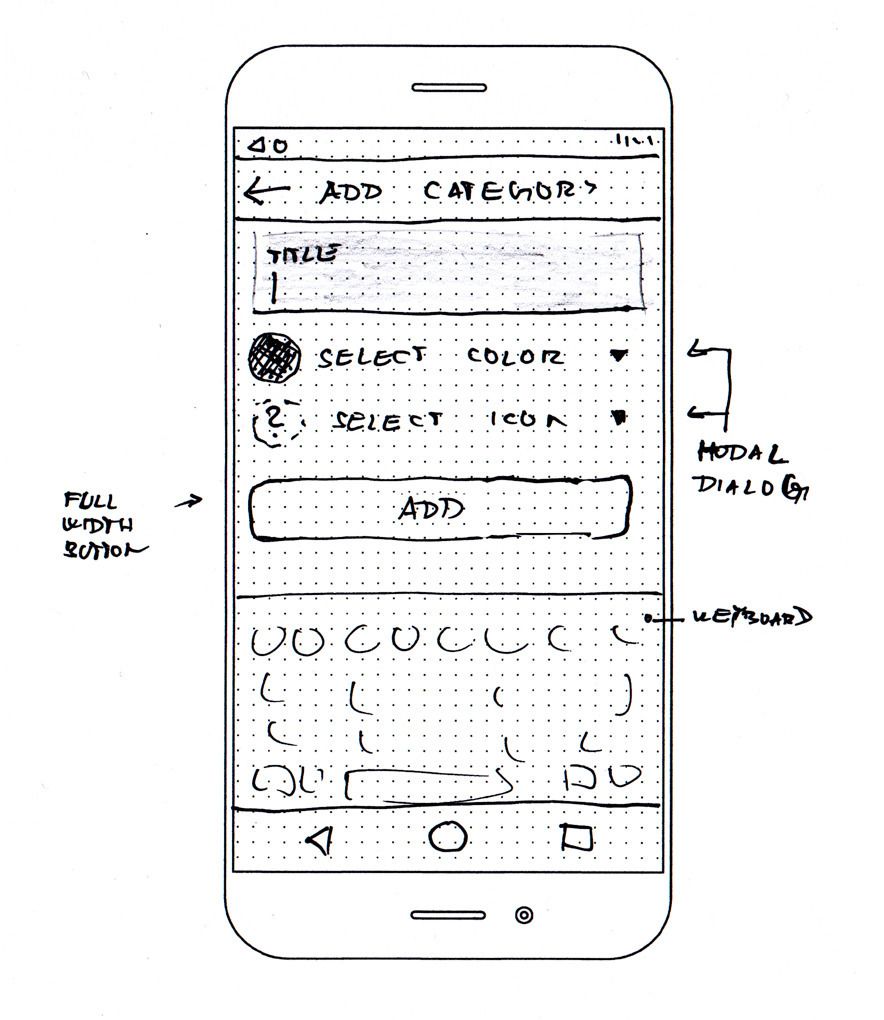 ADD CATEGORY
TITLE
SELECT COLOR
?
SELECT ICON
MODAL
DIALOG
FULL
WIDTH
BUTTON
ADD
KEYBOARD